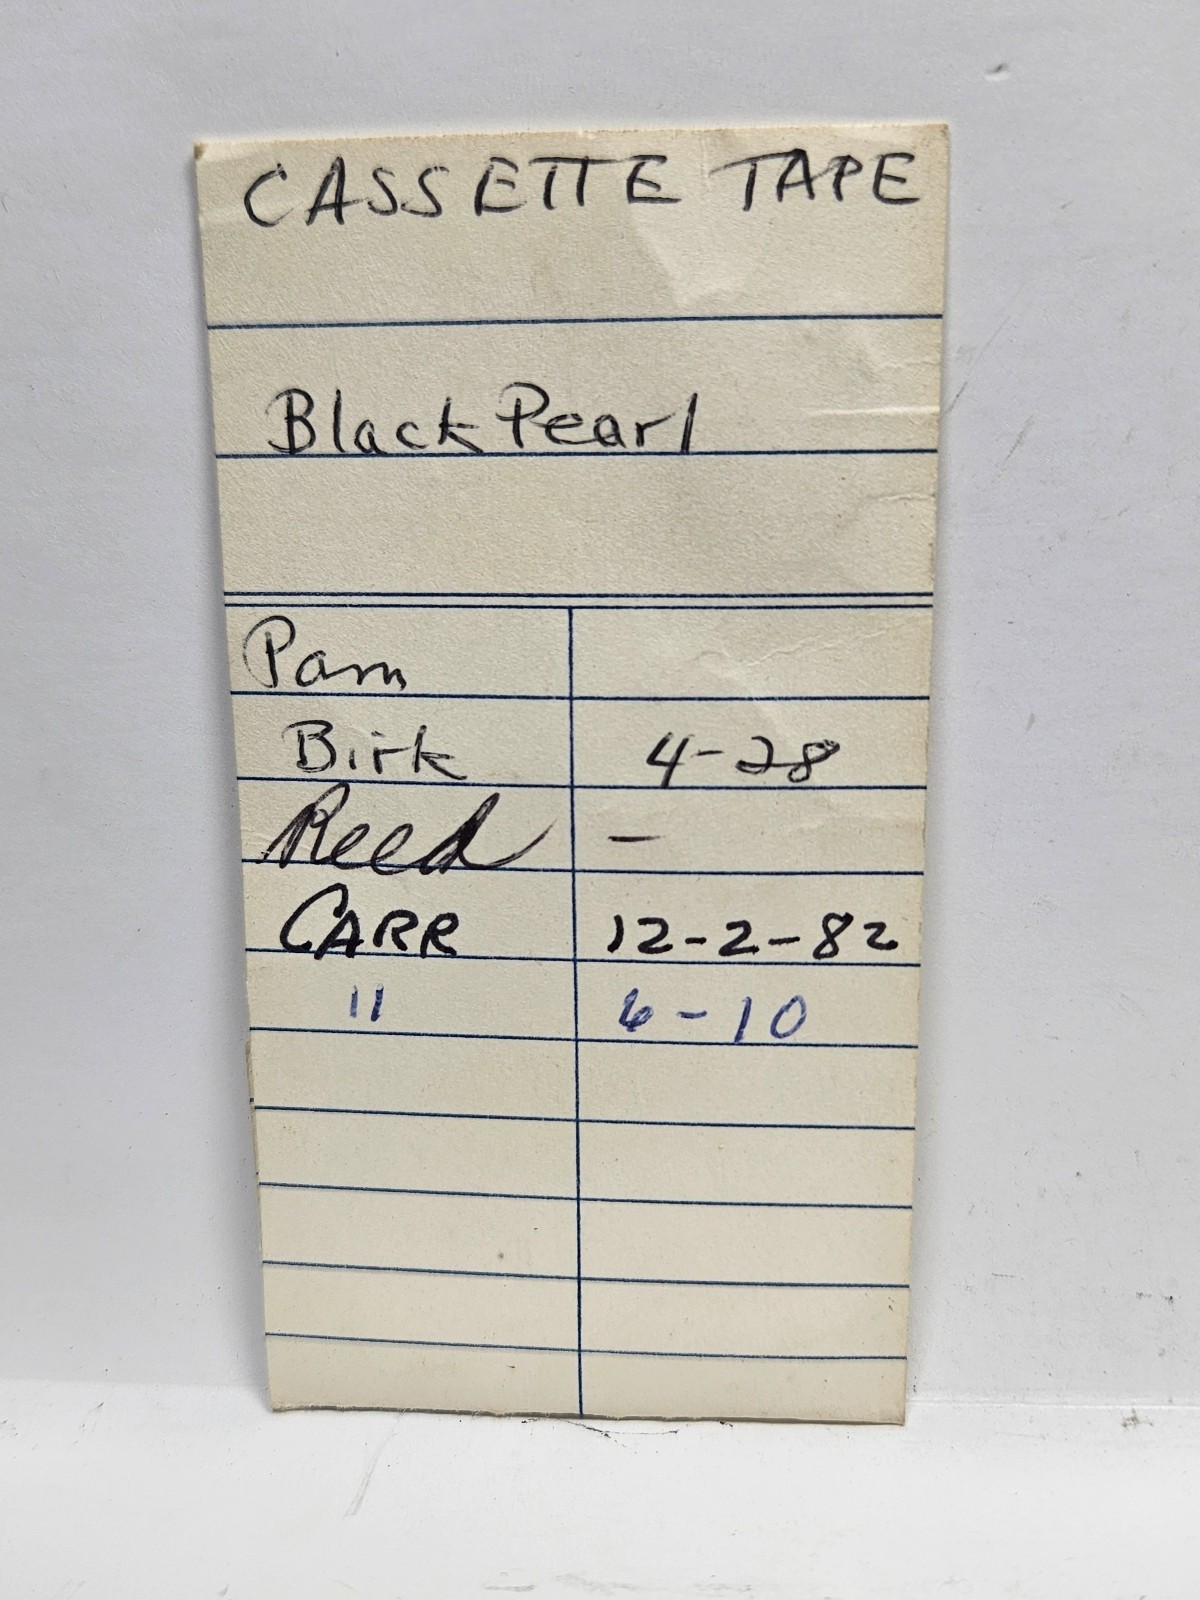 CASSETTE TAPE
Black Pearl
Pam
Birk 4-28
Reed -
CARR 12-2-82
" 6-10